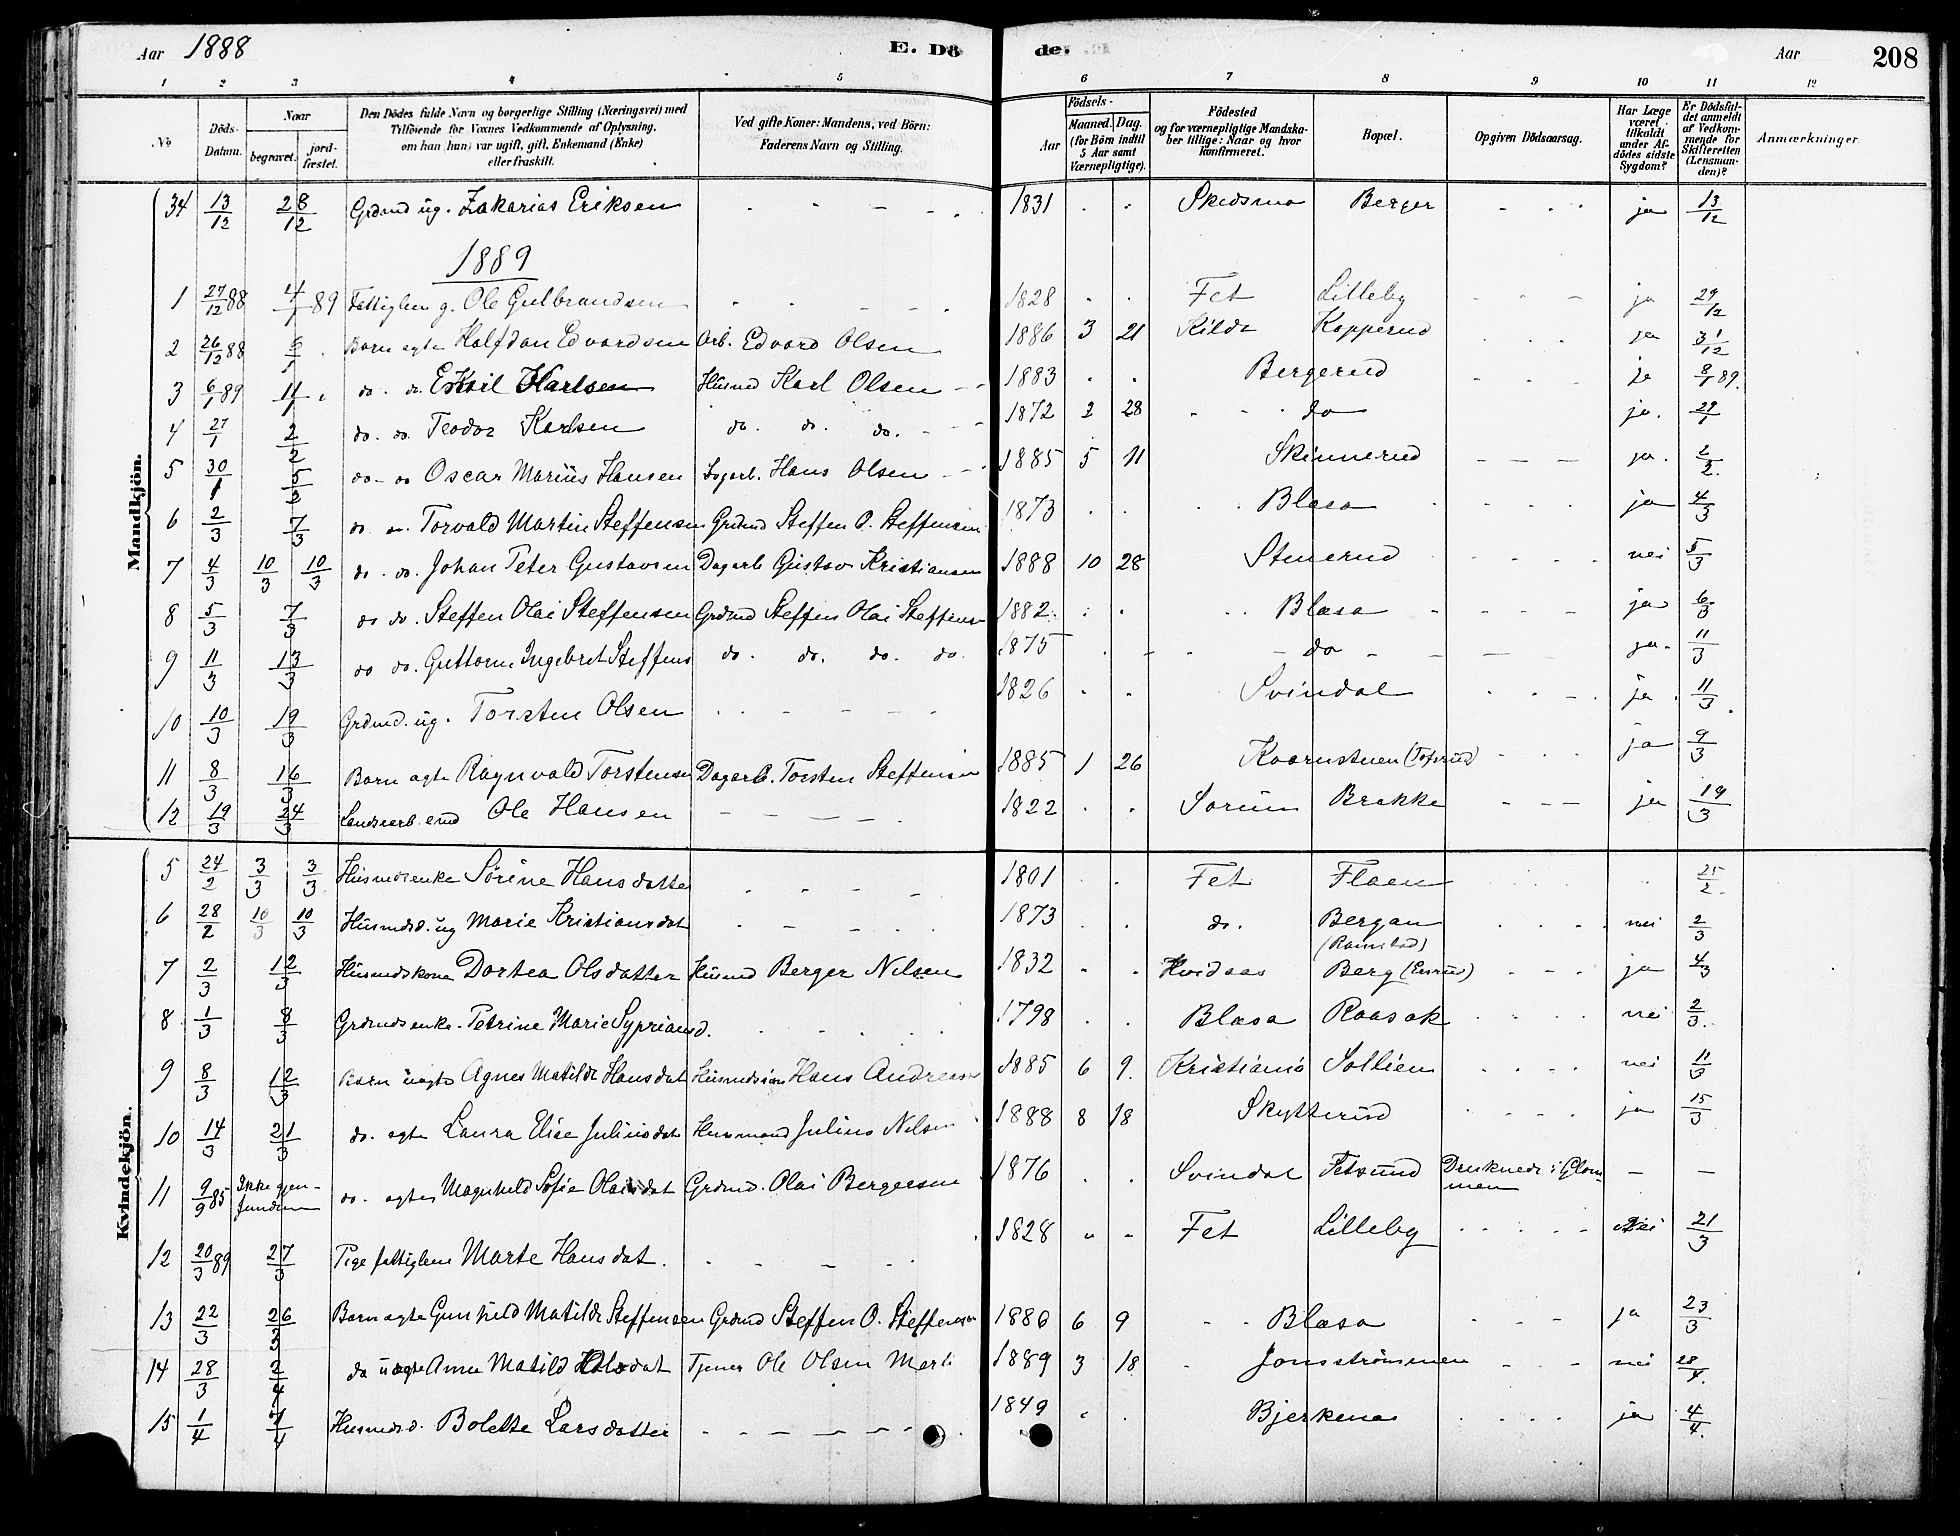 Aar 1888 E. Dö de. Aar 208
1 2 3 4 5 6 7 8 9 10 11 12
No Döds-Datum. Naar begravet. jord-fæstet. Den Dödes fulde Navn og borgerlige Stilling (Næringsvei) med Tilföiende for Voxnes Vedkommende af Oplysning, om han (hun) var ugift, gift, Enkemand (Enke) eller fraskilt. Ved gifte Koner: Mandens, ved Börn: Faderens Navn og Stilling. Födsels- Aar Maaned. Dag. (for Börn indtil 5 Aar samt Værnepligtige). Födested og for værnepligtige Mandska-ber tillige: Naar og hvor konfirmeret. Bopæl. Opgiven Dödsaarsag. Har Læge været tilkaldt under Af-dödes sidste Sygdom? Er Dödsfal-det anmeldt af Vedkom-mende for Skifteretten (Lensman-den)? Anmærkninger
Mandkjön.
34 13/12 28/12 Grdmd ug. Zakarias Eriksen 1831 Skedsmo Berger ja 13/12
1889
1 27/12 88 4/1 89 Fattiglem g. Ole Gulbrandsen 1828 Fet Lilleby ja 29/12
2 26/12 88 Barn egte Halfdan Edvardsen Arb. Edvard Olsen 1886 3 21 Kilde Kopperud ja 31/12
3 6/1 89 11/1 do. do. Eksil Karlsen Husmd Karl Olsen 1883 Bergerud ja 8/1 89.
4 27/1 2/2 do. do. Teodor Karlsen do. do. do. 1872 2 28 do ja. 29/1
5 30/1 5/2 do - do Oscar Marius Hansen Dagarb. Hans Olsen 1885 5 11 Skinnerud ja. 2/2.
6 2/3 7/3 do do. Torvald Martin Steffensen Grdmd Steffen O. Steffensen 1873 Blasa ja 4/3
7 4/3 10/3 10/3 do. do. Johan Peter Gustavsen Dagarb Gustav Kristiansen 1888 10 28 Stenerud nei 5/3
8 5/3 7/3 do do. Steffen Olai Steffensen Grdmd Steffen Olai Steffensen 1882 Blasa ja 6/3
9 11/3 13/3 do do. Guttorm Ingebret Steffens do. do. do. do. 1875 do ja. 11/3
10 10/3 19/3 Grdmd. ug. Torsten Olsen 1826 Svindal ja 11/3
11 8/3 16/3 Barn agte Ragnvald Torstensen Dagarb. Torsten Steffensen 1885 1 26 Kaarnstuen ja 9/3
12 19/3 24/3 emd Ole Hansen 1822 Sørum Brakke ja 19/3
Kvindekjön.
5 24/2 3/3 3/3 Husmdsenke Sørine Hansdatter 1801 Fet Flaen 25/2
6 28/2 10/3 10/3 Husmdsd. ug Marie Kristiansdat 1873 do. Bergan (Ramstad) nei 2/3
7 2/3 12/3 Husmdskone Dortea Olsdatter Husmd Berger Nilsen 1832 Hvidsas Berg ja 4/3
8 1/3 8/3 Grdmdsenke. Petrine Marie Sypriansd. 1798 Blasa Raasok nei 2/3.
9 8/3 12/3 Barn uagte Agnes Matilde Hansdat Husmdssøn Hans Andreas 1885 6 9. Kristiania Sollien nei 11/3
10 14/3 21/3 do. agte Laura Elise Juliusdat Husmand Julius Nilsen 1888 8 18 Skytterud ja 15/3
11 9/9 85 Ikke gjen-funden do. agte Magnhild Sofie Olaisdat Grdmd. Olai Bergersen 1876 Svindal Fetsund Druknede i Glom-men
12 20/3 89 27/3 Pige fattiglem Marte Hansdat. 1828 Fet Lilleby Nei 21/3
13 22/3 26/3 Barn agte Gunhild Matilde Steffensen Grdmd Steffen O. Steffensen 1886 6 9 Blasa ja 23/3
14 28/3 2/4 do uagte Anna Matild Olsdat Tjener Ole Olsen 1889 3 18 Jonsstrømmen nei 28/4.
15 1/4 Husmdsd. Bolette Larsdatter 1849 Bjerkenes ja 4/4.